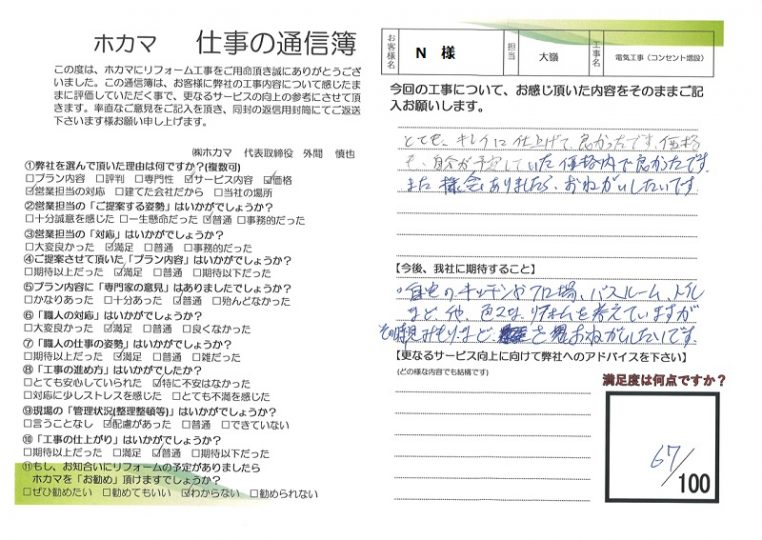 ホカマ 仕事の通信簿
この度は、ホカマにリフォーム工事をご用命頂き誠にありがとうござ
いました。この通信簿は、お客様に弊社の工事内容について感じたま
まに評価していただく事で、更なるサービスの向上の参考にさせて頂
きます。率直なご意見をご記入を頂き、同封の返信用封筒にてご返送
下さいます様お願い申し上げます。
㈱ホカマ 代表取締役 外間 慎也
①弊社を選んで頂いた理由は何ですか？(複数可)
□プラン内容 □評判 □専門性 ☑サービス内容 ☑価格
☑営業担当の対応 □建てた会社だから □当社の場所
②営業担当の「ご提案する姿勢」はいかがでしょうか？
□十分誠意を感じた □一生懸命だった ☑普通 □事務的だった
③営業担当の「対応」はいかがでしょうか？
□大変良かった ☑満足 □普通 □事務的だった
④ご提案させて頂いた「プラン内容」はいかがでしょうか？
□期待以上だった ☑満足 □普通 □期待以下だった
⑤プラン内容に「専門家の意見」はありましたでしょうか？
□かなりあった □十分あった ☑普通 □殆んどなかった
⑥「職人の対応」はいかがでしょうか？
□大変良かった ☑満足 □普通 □良くなかった
⑦「職人の仕事の姿勢」はいかがでしょうか？
□期待以上だった ☑満足 □普通 □雑だった
⑧「工事の進め方」はいかがでしたか？
□とても安心していられた ☑特に不安はなかった
□対応に少しストレスを感じた □とても不満を感じた
⑨現場の「管理状況(整理整頓等)」はいかがでしょうか？
□言うことなし ☑配慮があった □普通 □できていない
⑩「工事の仕上がり」はいかがでしょうか？
□期待以上だった □満足 ☑普通 □期待以下だった
⑪もし、お知合いにリフォームの予定がありましたら
ホカマを「お勧め」頂けますでしょうか？
□ぜひ勧めたい □勧めてもいい ☑わからない □勧められない
お客様名 N 様 担当 大嶺 工事名 電気工事（コンセント増設）
今回の工事について、お感じ頂いた内容をそのままご記
入お願いします。
とても、キレイに仕上げて良かったです。価格
も、自分が予定していた価格内で良かったです。
また機会ありましたら、おねがいしたいです。
【今後、我社に期待すること】
。自宅のキッチンやフロ場、バスルーム、トイレ
など、他、色々な、リフォームを考えていますが
その時見みもりなど おねがいしたいです。
【更なるサービス向上に向けて弊社へのアドバイスを下さい】
(どの様な内容でも結構です)
満足度は何点ですか？
67/100